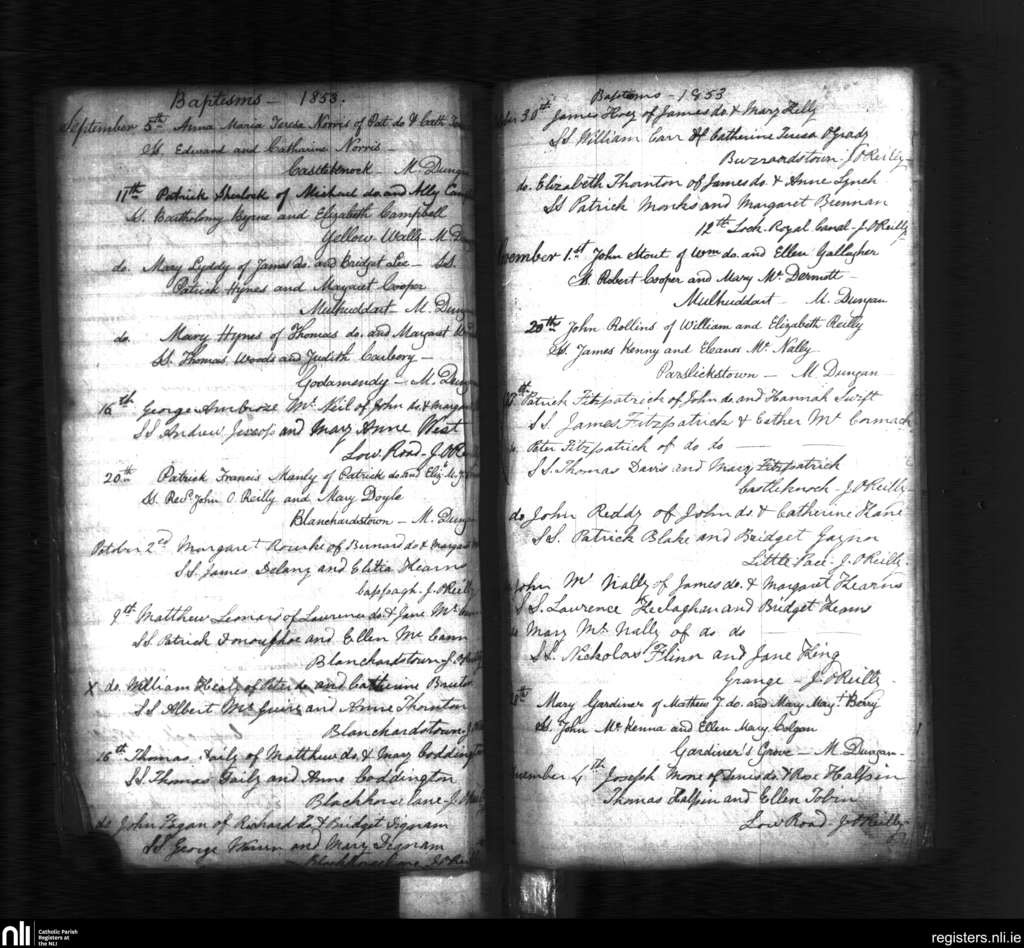 Baptisms - 1853.
September 5th Anna Maria Teresa Norris of Pat do & Cath
SS. Edward and Catharine Norris -
Castleknock - M. Dungan
11th Patrick Sherlock of Michael do and Ally
SS. Bartholomy Byrne and Elizabeth Campbell
Yellow Walls - M.
do. Mary Lyddy of James do. and Bridget Lee - SS.
Patrick Hynes and Margaret Cooper
Mulhuddart - M. Dungan
do. Mary Hynes of Thomas do. and Margaret
SS. Thomas Woods and Judith
Godamendy - M. Dungan
16th George Ambrose Mc Neil of John do. &
SS Andrew Jessop and Mary Anne West
Low Road - J. O
20th Patrick Francis Manly of Patrick do. and Eliz.
SS. Revd. John O Reilly and Mary Doyle
Blanchardstown - M. Dungan
October 2nd Margaret Rourke of Bernard do. &
SS. James Delany and Hearns
Cappagh. J. O'Reilly
9th Matthew Leonard of Laurence do & Jane Mc
SS Patrick Donoughoe and Ellen Mc Cann
Blanchardstown J. O
X do. William Healy of Peter do and Catherine
SS Albert Mc Guire and Anne Thornton
Blanchardstown.
16th Thomas of Matthew do. & Mary Coddington
SS. Thomas and Anne Coddington
Blackhorse Lane - J. O
do John Fagan of Richard do & Bridget Dignam
SS George and Mary Dignam
Blackhorse
Baptisms - 1853
30th James Hoey of James do & Mary Kelly
SS William Carr & Catherine Teresa O'Grady
Buzzardstown - J. O'Reilly -
do. Elizabeth Thornton of James do. & Anne Lynch
SS Patrick Monks and Margaret Brennan
12th Lock - Royal Canal - J. O'Reilly
1st John Stout of Wm do. and Ellen Gallagher
SS. Robert Cooper and Mary Mc Dermott -
Mulhuddart - M. Dungan
20th John Rollins of William and Elizabeth Reilly
SS. James Kenny and Eleanor Mc Nally -
Parslickstown - M Dungan -
Patrick Fitzpatrick of John do. and Hannah Swift
SS. James Fitzpatrick & Esther Mc Cormack
Peter Fitzpatrick of do do
SS. Thomas Davis and Mary Fitzpatrick
Castleknock - J. O'Reilly
do John Reddy of John do & Catherine Kane
SS. Patrick Blake and Bridget Gaynor
Little Pace - J. O'Reilly -
John Mc Nally of James do. & Margaret Kearns
SS. Laurence and Bridget Kearns
Mary Mc Nally of do do
SS. Nickolas Flinn and Jane King
Grange - J. O'Reilly -
Mary Gardiner of Mathew J. do. and Mary Mayt. Berry
SS. John Mc Kenna and Ellen Mary Colgan
Gardiner's Grove - M Dungan -
4th Joseph More of Denis do. & Rose Halpin
Thomas Halpin and Ellen Tobin
Low Road - J. O'Reilly -
nli
Catholic Parish
Registers at
the NLI
registers.nli.ie